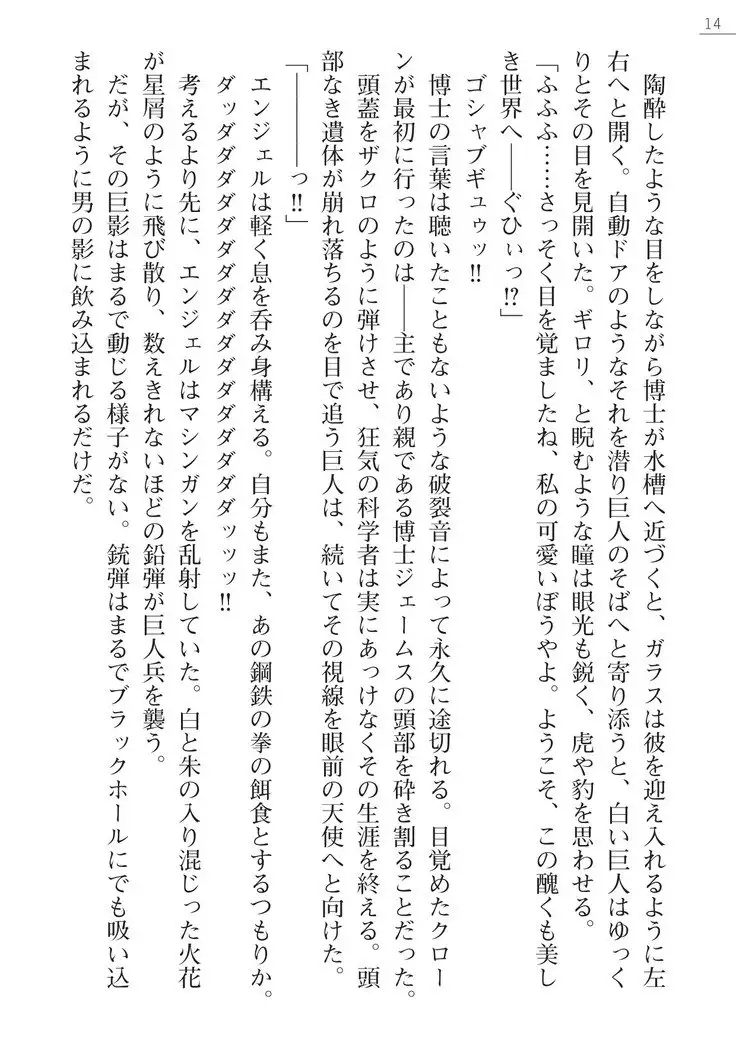 14
陶酔したような目をしながら博士が水槽へ近づくと、ガラスは彼を迎え入れるように左
右へと開く。自動ドアのようなそれを潜り巨人のそばへと寄り添うと、白い巨人はゆっく
りとその目を見開いた。ギロリ、と睨むような瞳は眼光も鋭く、虎や豹を思わせる。
「ふふふ……さっそく目を覚ましたね、私の可愛いぼうやよ。ようこそ、この醜くも美し
き世界へ――ぐひぃっ!?」
ゴシャブギュゥッ!!
博士の言葉は聴いたこともないような破裂音によって永久に途切れる。目覚めたクロー
ンが最初に行ったのは――主であり親である博士ジェームスの頭部を砕き割ることだった。
頭蓋をザクロのように弾けさせ、狂気の科学者は実にあっけなくその生涯を終える。頭
部なき遺体が崩れ落ちるのを目で追う巨人は、続いてその視線を眼前の天使へと向けた。
「――――っ!!」
エンジェルは軽く息を呑み身構える。自分もまた、あの鋼鉄の拳の餌食とするつもりか。
ダッダダダダダダダダダダダダダダダッッッ!!
考えるより先に、エンジェルはマシンガンを乱射していた。白と朱の入り混じった火花
が星屑のように飛び散り、数えきれないほどの鉛弾が巨人兵を襲う。
だが、その巨影はまるで動じる様子がない。銃弾はまるでブラックホールにでも吸い込
まれるように男の影に飲み込まれるだけだ。